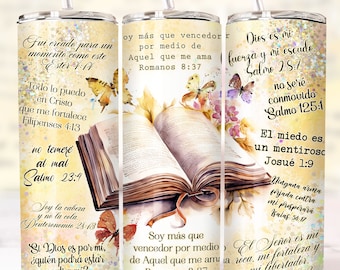 Fui creado para un
momento como este
Ester 4:14
Todo lo puedo
en Cristo
que me fortalece
Filipenses 4:13
no temeré
al mal
Salmo 23:4
Soy la cabeza
y no la cola
Si Dios es por mí,
¿quién podrá estar
Soy más que vencedor
por medio de
Aquel que me ama
Romanos 8:37
Soy más que
vencedor por medio
de Aquel que me ama
Dios es mi
fuerza y mi escudo
Salmo 28:7
no seré
conmovida
Salmo 125:1
El miedo es
un mentiroso
Josué 1:9
Ninguna arma
forjada contra
mí prosperará
Isaías 54:17
El Señor es mi
roca, mi fortaleza y
libertador